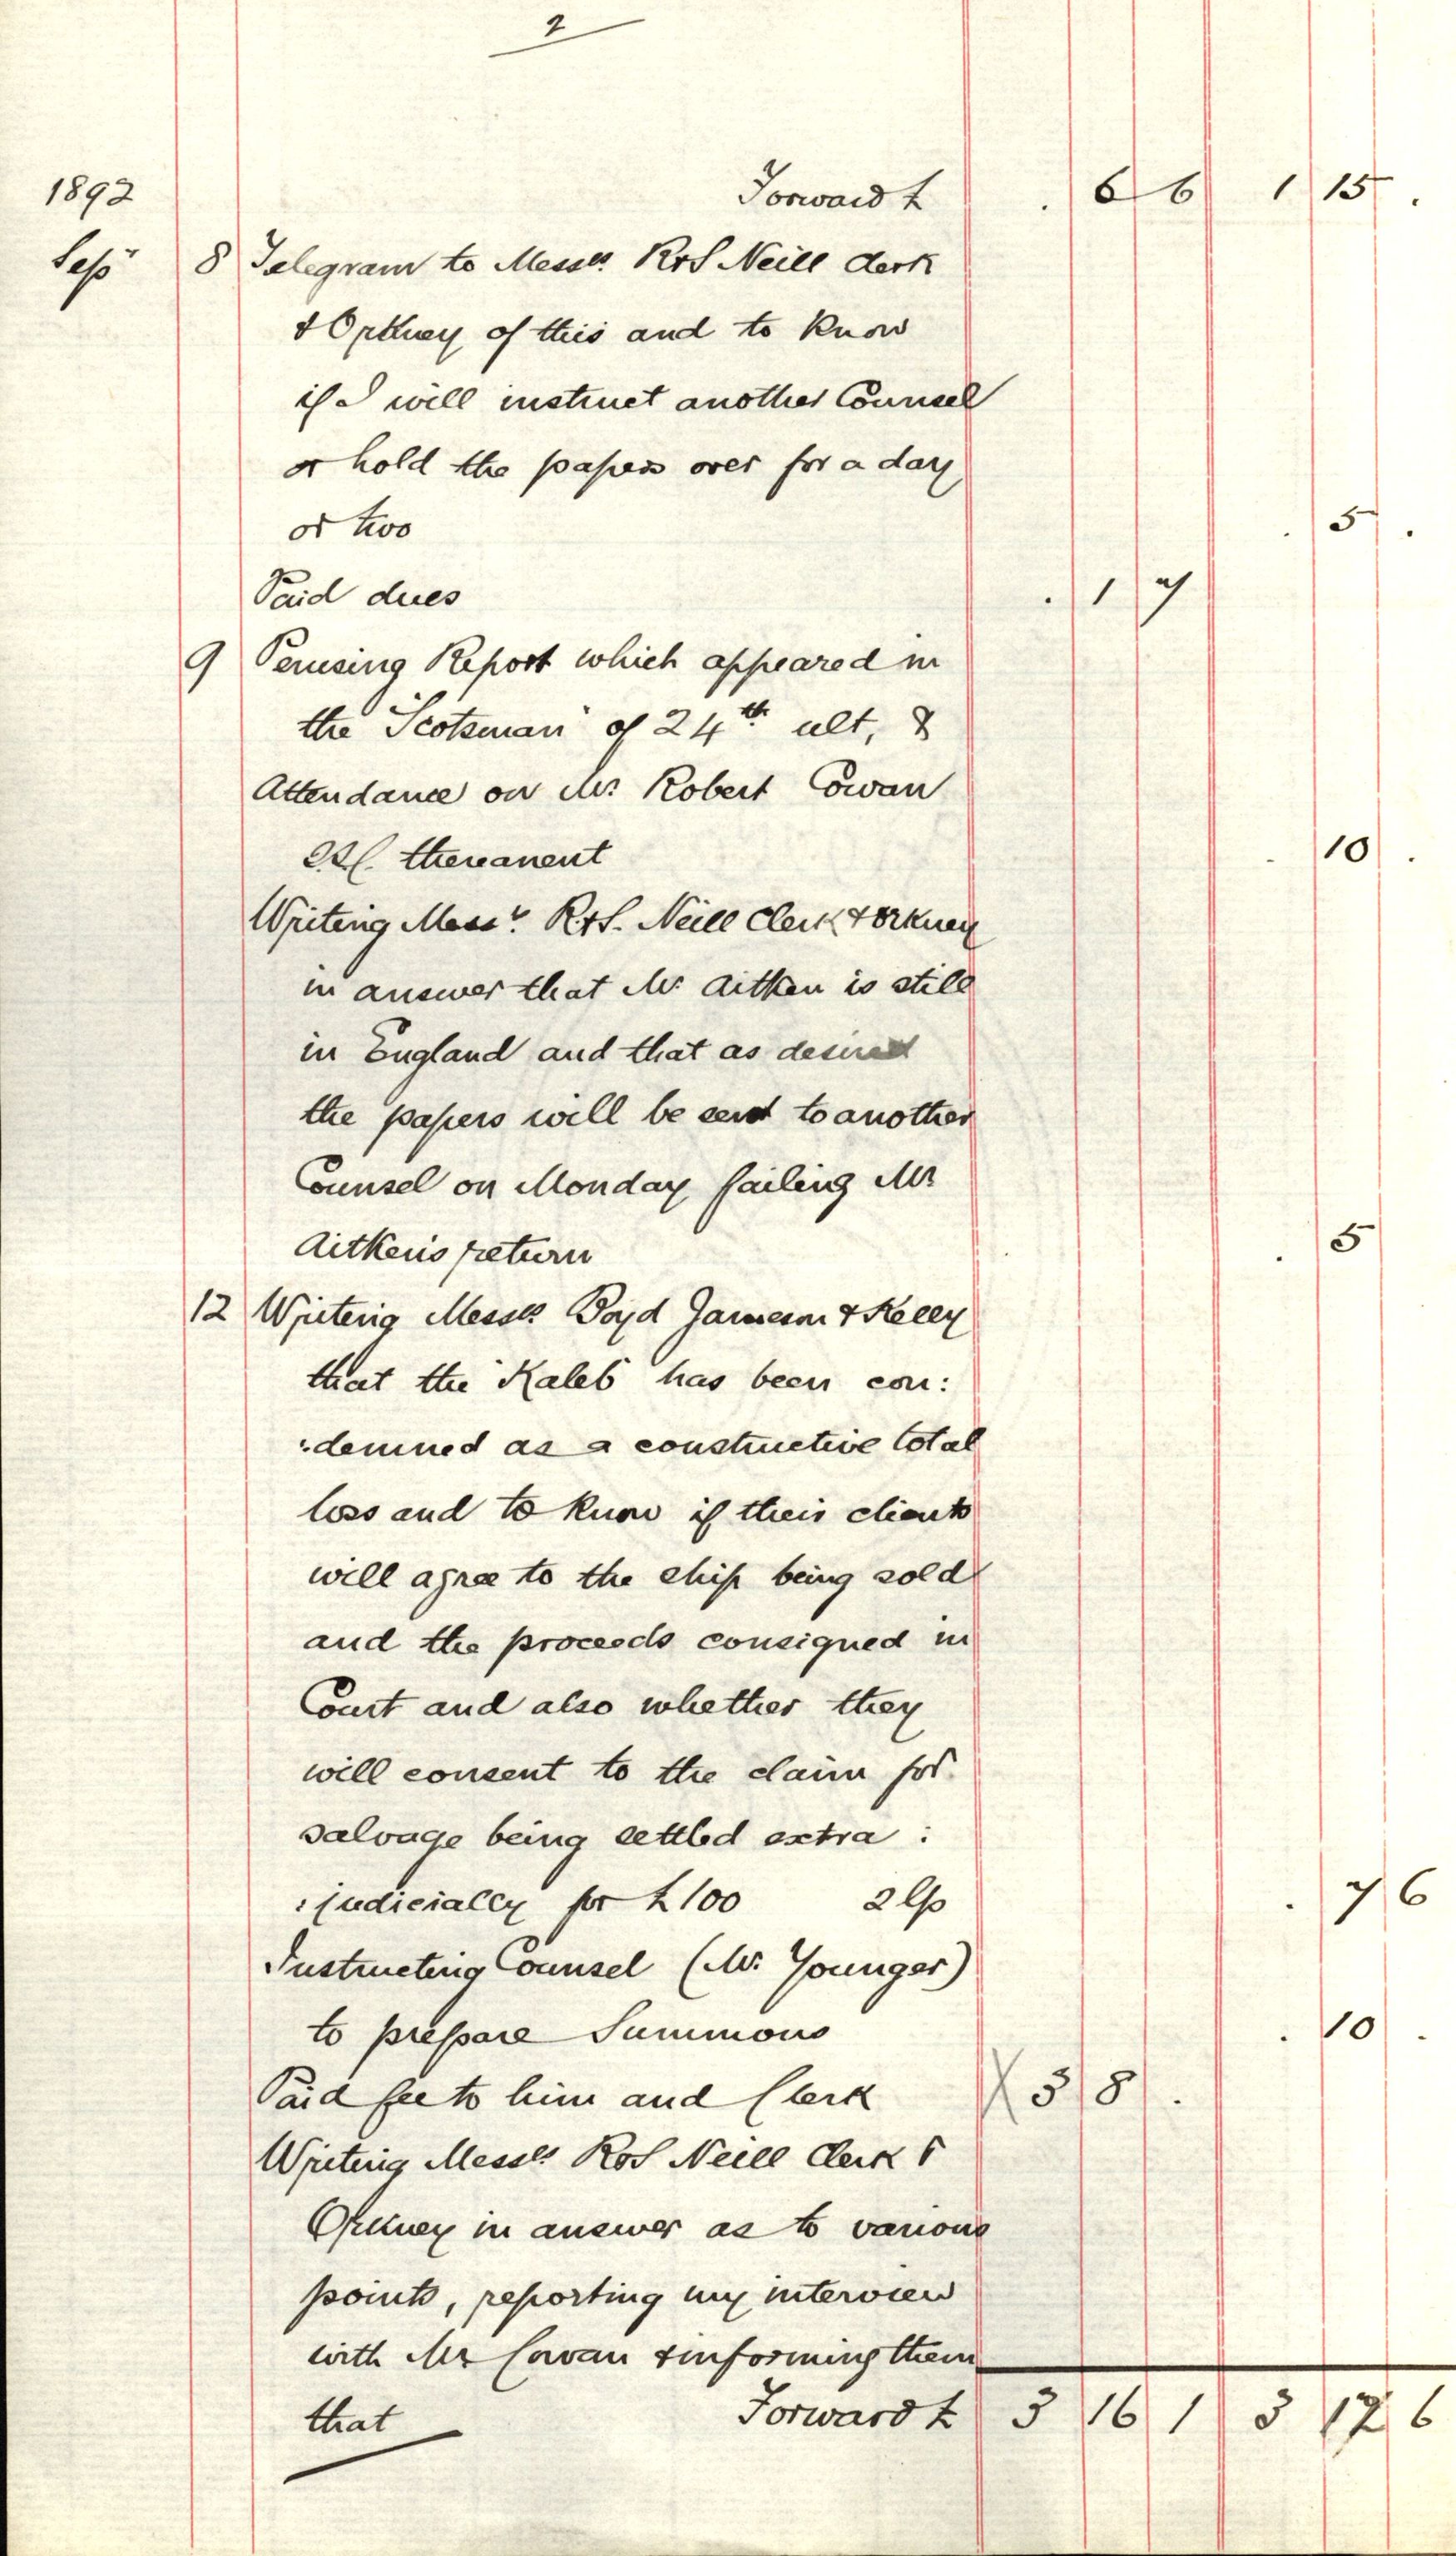 2
1892 Forward £ . 6 6 1 15 .
Sepr 8 Telegram to Messrs R & S Neill Clerk
& Orkney of this and to know
if I will instruct another Counsel
or hold the papers over for a day
or two . 5 .
Paid dues . 1 7
9 Perusing Report which appeared in
the "Scotsman" of 24th ult, &
Attendance on Mr Robert Cowan
thereanent . 10 .
Writing Messrs R & S. Neill Clerk & Orkney
in answer that Mr Aitken is still
in England and that as desired
the papers will be sent to another
Counsel on Monday failing Mr
Aitken's return . 5
12 Writing Messrs Boyd Jameson & Kelly
that the "Kaleb" has been con:
:demned as a constructive total
loss and to know if their clients
will agree to the ship being sold
and the proceeds consigned in
Court and also whether they
will consent to the claim for
salvage being settled extra :
:judicially for £100 2 p . 7 6
Instructing Counsel (Mr Younger)
to prepare Summons . 10 .
Paid fee to him and Clerk 3 8 .
Writing Messrs R & S Neill Clerk &
Orkney in answer as to various
points, reporting my interview
with Mr Cowan & informing them
that Forward £ 3 16 1 3 12 6